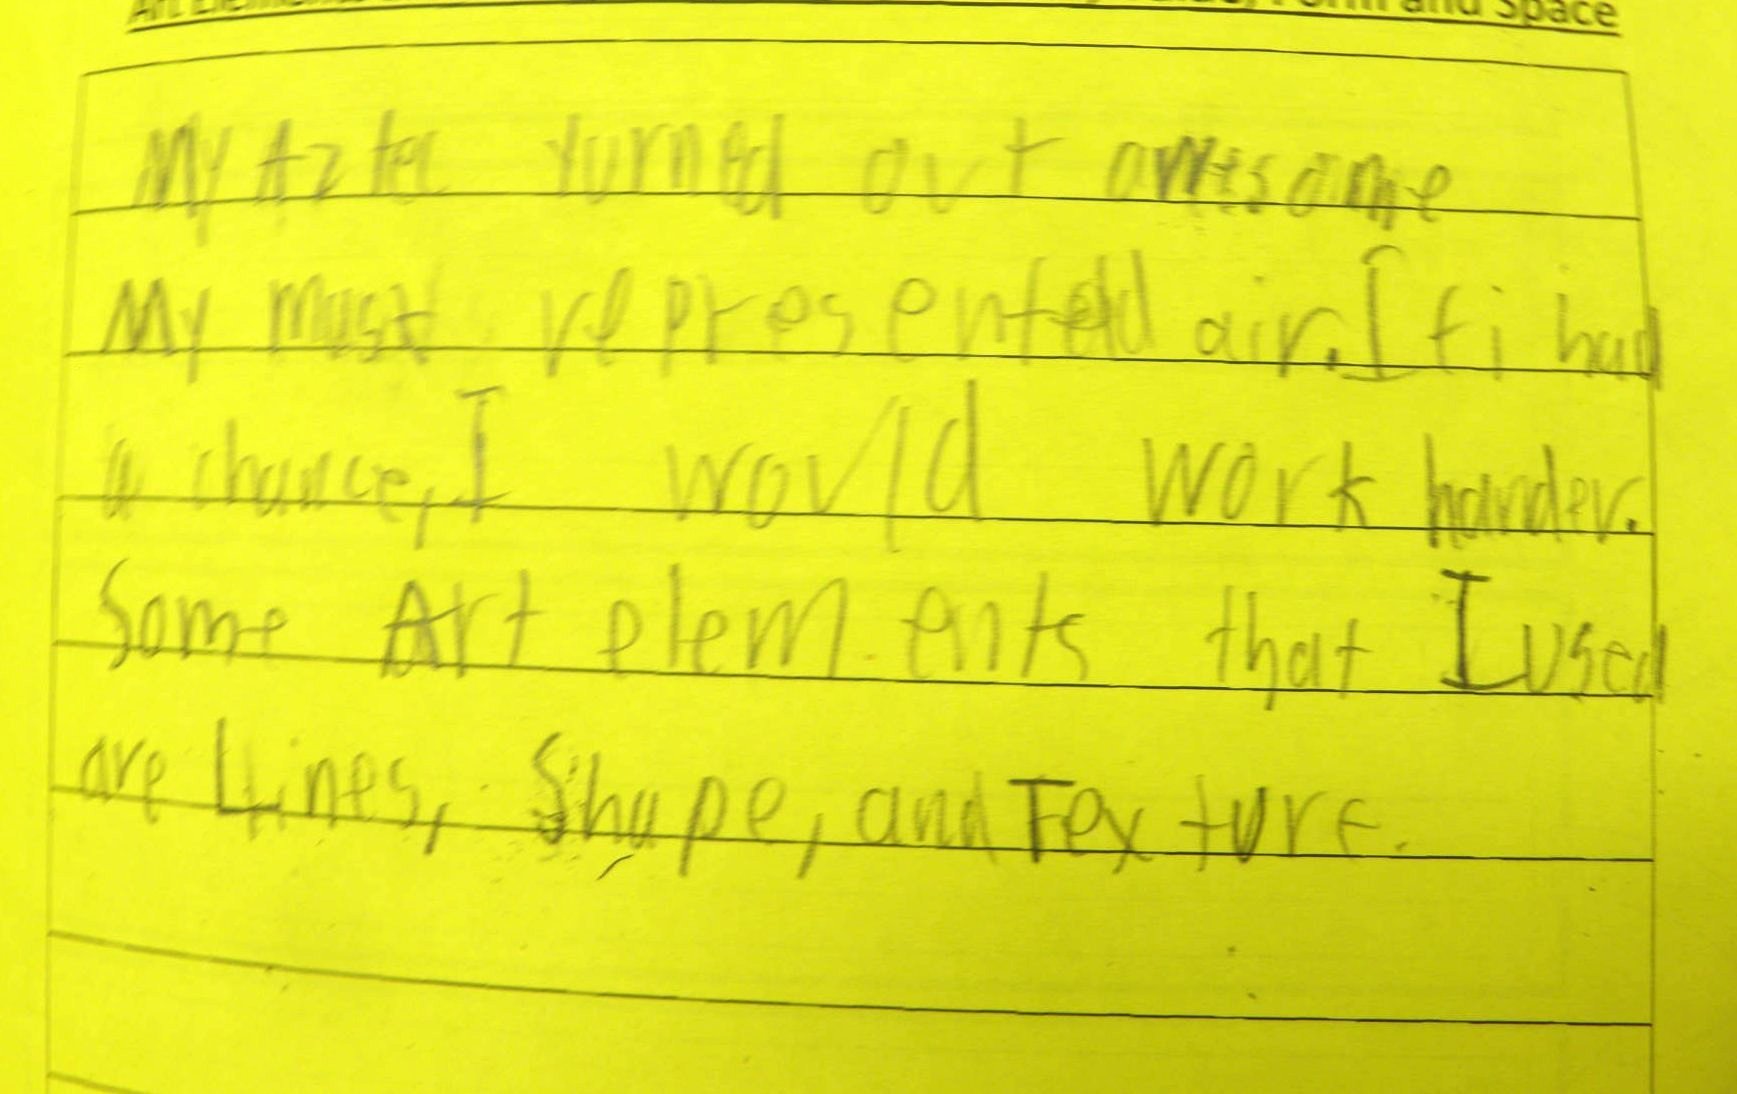 Art Elements Form and Space
My Aztec turned out awesome
My mask represented air. If i had
a chance, I would work harder.
Some Art elements that I used
are Lines, Shape, and Texture.